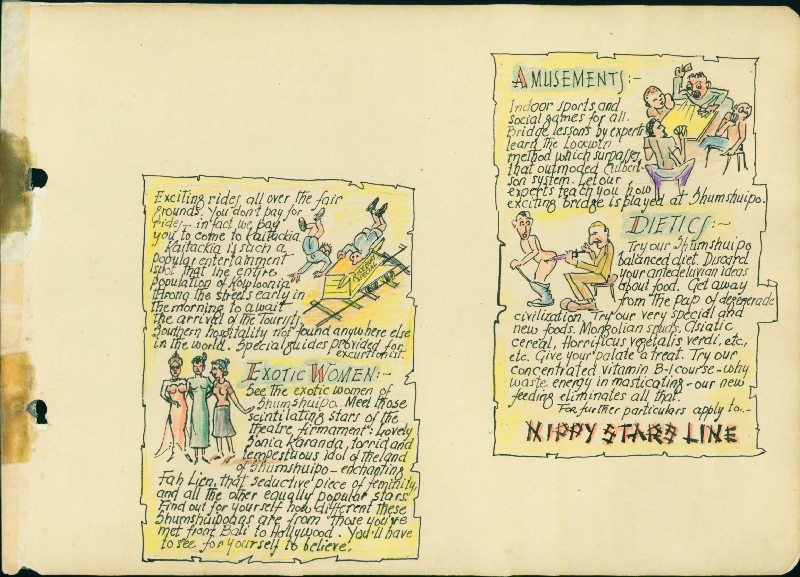 Exciting rides all over the fair
grounds. You don't pay for
rides – in fact we pay
you to come to Kaitackia
Kaitackia is such a
popular entertainment
spot that the entire
population of Kowloonia
throng the streets early in
the morning to await
the arrival of the Tourists
Southern hospitality not found anywhere else
in the world. Special guides provided for
excurtionist.
EXOTIC WOMEN:-
See the exotic women of
Shumshuipo. Meet those
scintilating stars of the
theatre firmament: Lovely
Sonia Karanda, torrid and
tempestuous idol of the land
of Shumshuipo – enchanting
Fah Lien, that seductive piece of feminity,
and all the other equally popular stars
Find out for yourself how different these
Shumshuipoans are from those you've
met from Bali to Hollywood. You'll have
to see for yourself to believe.
AMUSEMENTS:-
Indoor sports and
social games for all.
Bridge lessons by expert
learn the Lockwin
method which surpasses
that outmoded Culbert-
son system. Let our
experts teach you how
exciting bridge is played at Shumshuipo.
DIETICS:-
Try our Shumshuipo
balanced diet. Discard
your antedeluvian ideas
about food. Get away
from the pap of degenerade
civilization. Try our very special and
new foods. Mongolian spuds, Asiatic
cereal, Horrificus vegetalis verdi, etc,
etc. Give your palate a treat. Try our
concentrated vitamin B-1 course – why
waste energy in masticating – our new
feeding eliminates all that.
For further particulars apply to.-
NIPPY STARS LINE